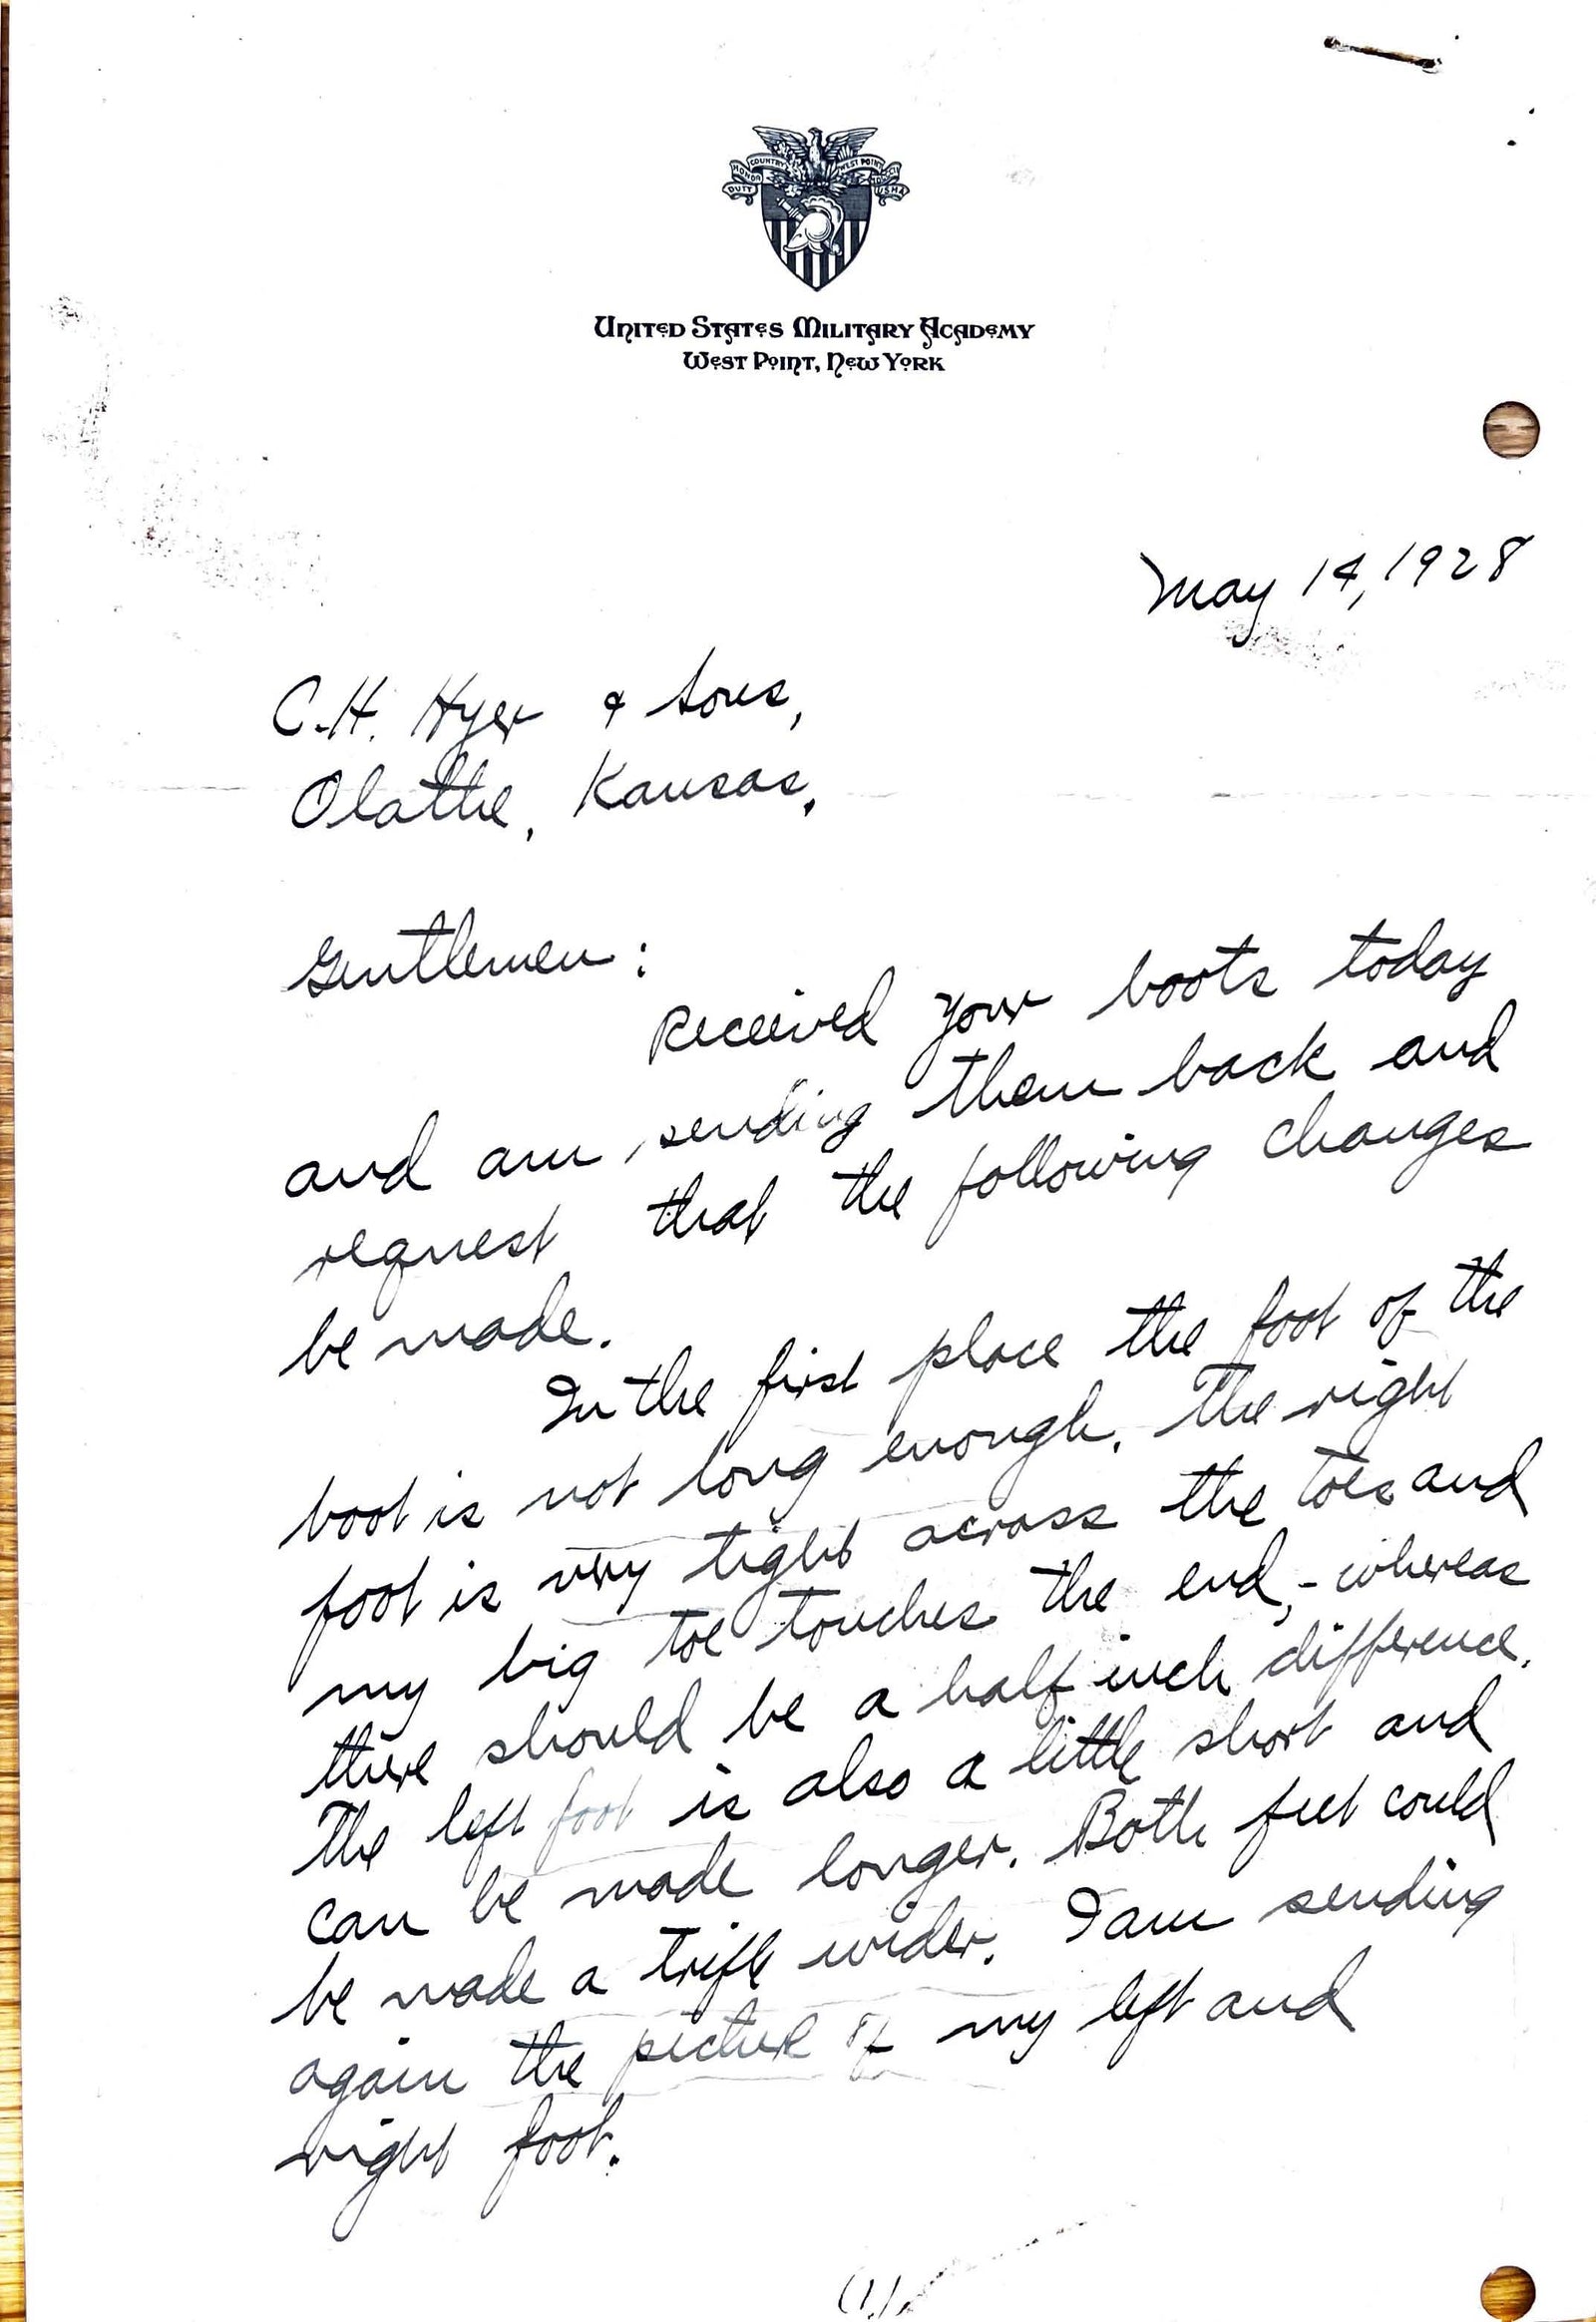 DUTY HONOR COUNTRY WEST POINT MDCCCII USMA
United States Military Academy
West Point, New York
May 14, 1928
C.H. Hyer & Sons,
Olathe, Kansas,
Gentlemen:
Received your boots today
and am sending them back and
request that the following changes
be made.
In the first place the foot of the
boot is not long enough. The right
foot is very tight across the toes and
my big toe touches the end,- whereas
there should be a half inch difference.
The left foot is also a little short and
can be made longer. Both feet could
be made a trifle wider. I am sending
again the picture of my left and
right foot.
(1)